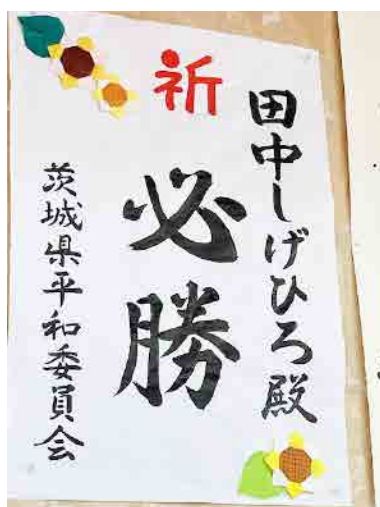 田中しげひろ殿
祈
必勝
茨城県平和委員会